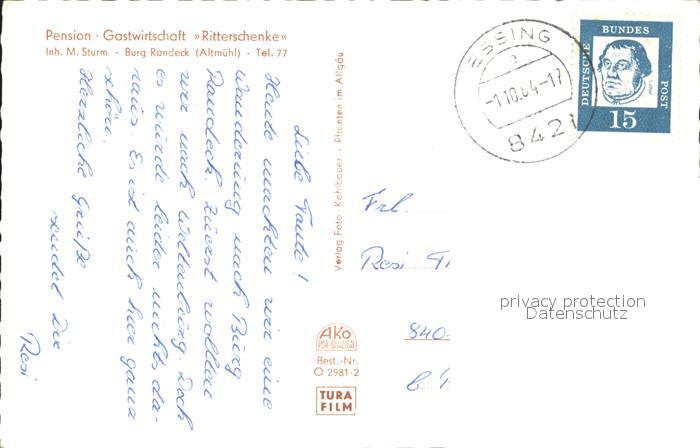 Pension · Gastwirtschaft »Ritterschenke«
Inh. M. Sturm · Burg Randeck (Altmühl) · Tel. 77
Liebe Tante!
Heute machten wir eine
Wanderung nach Burg
Randeck. Zuerst wollten
wir nach Weltenburg. Doch
es wurde leider nichts da-
raus. Es ist auch hier ganz
schön.
Herzliche Grüße
sendet Dir
Resi
Verlag Foto-Kohlbauer · Pfronten im Allgäu
AKo
FÜR QUALITÄT
Best.-Nr.
O 2981-2
TURA
FILM
ESSING
a
-1.10.64-17
8421
DEUTSCHE
BUNDES
POST
Luther
15
Frl.
Resi
840
privacy protection
Datenschutz